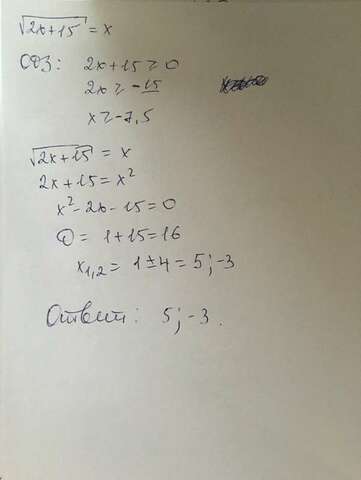 √2x+15 = x
ОДЗ: 2x+15≥0
2x≥-15
x≥-7,5
√2x+15 = x
2x+15=x²
x²-2x-15=0
D= 1+15=16
x₁,₂= 1±4=5;-3
Ответ: 5;-3.